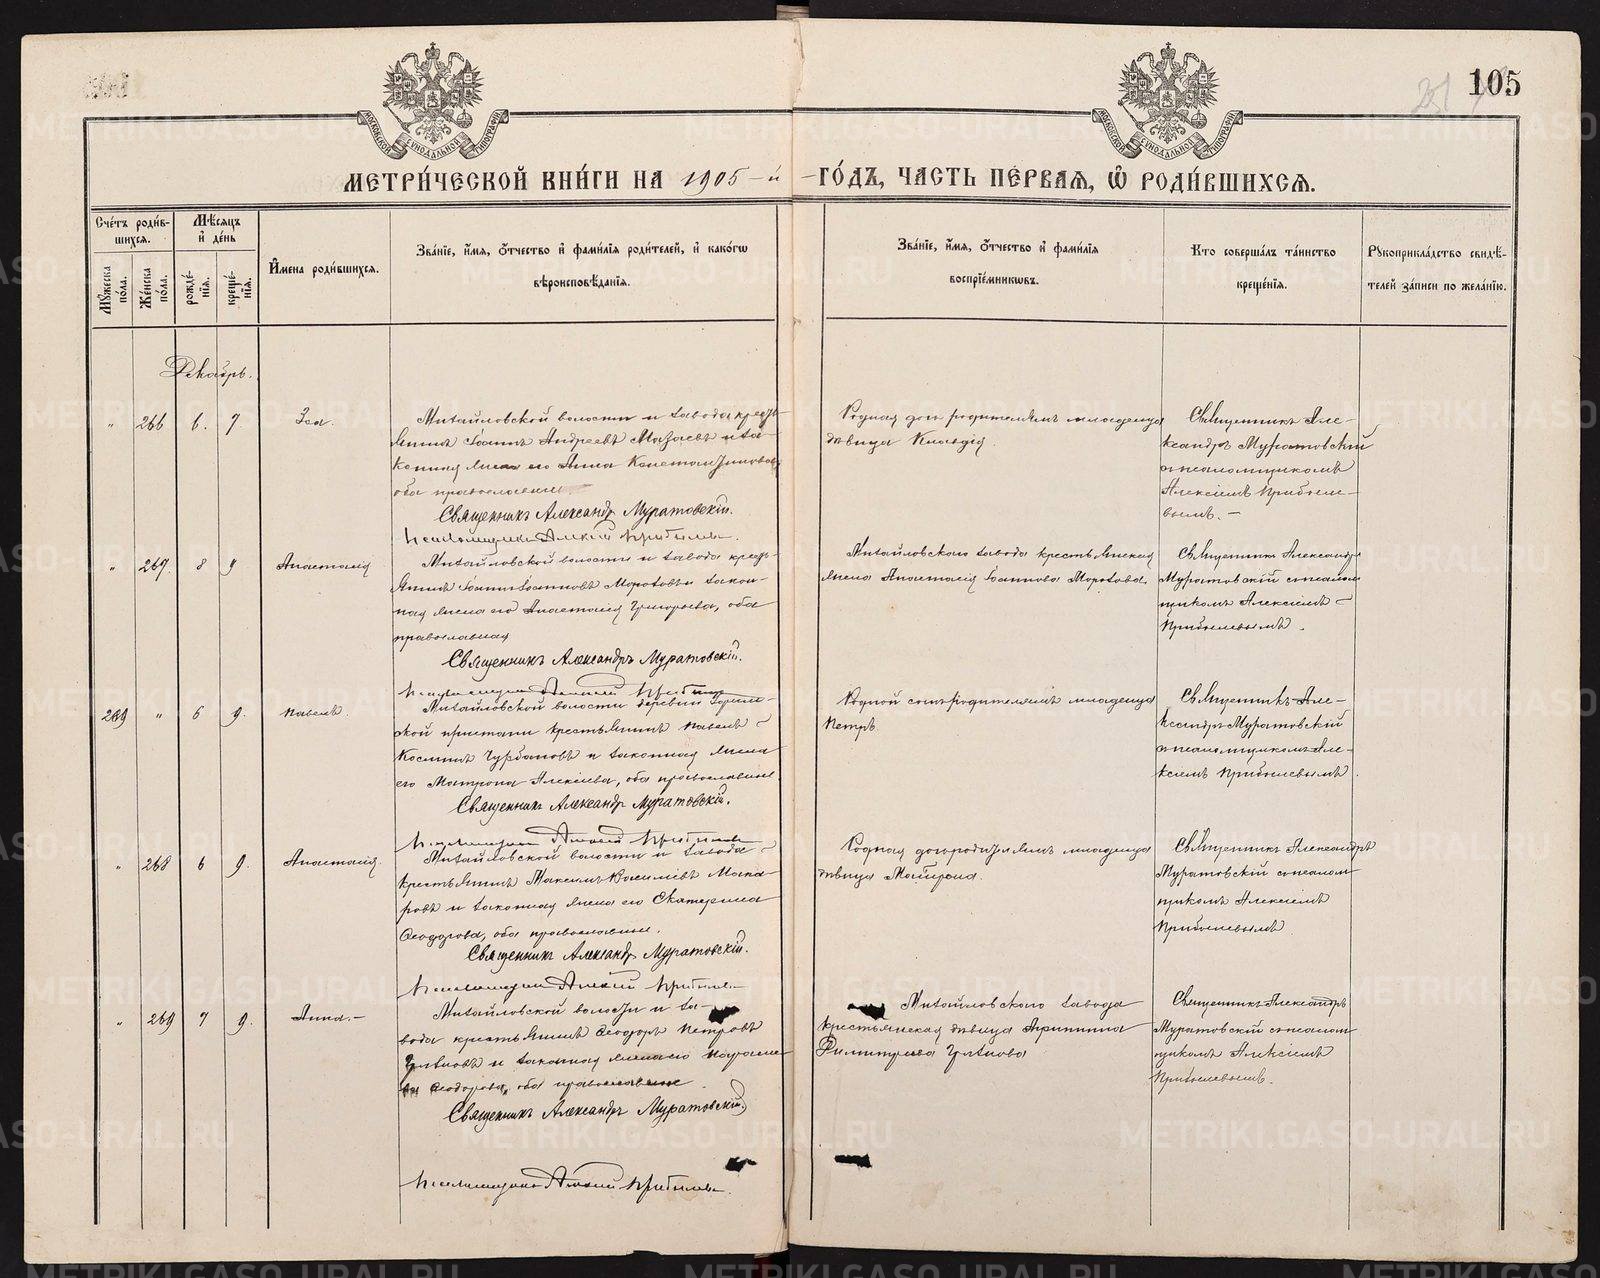 105
МОСКОВСКОЙ СѴНОДАЛЬНОЙ ТИПОГРАФІИ
МОСКОВСКОЙ СѴНОДАЛЬНОЙ ТИПОГРАФІИ
МЕТРИ́ЧЕСКОЙ КНИ́ГИ НА 1905-й ГО́ДЪ, ЧАСТЬ ПЕ́РВАЯ, Ѡ РОДИ́ВШИХСЯ.
Сче́тъ роди́в-
шихся.
Мѣ́сяцъ
и де́нь
Му́жеска
по́ла.
Же́нска
по́ла.
рожде́-
нія.
креще́-
нія.
И́мена роди́вшихся.
Зва́ніе, и́мя, о́тчество и фами́лія роди́телей, и како́гѡ
вѣроисповѣ́данія.
Зва́ніе, и́мя, о́тчество и фами́лія
воспріе́мниковъ.
Кто соверша́лъ та́инство
креще́нія.
Рукоприкла́дство свидѣ́-
телей за́писи по жела́нію.
Декабрь.
" 266 6. 7. Зоя.
Михайловской волости и завода кресть-
янинъ Іоаннъ Андреевъ Мазаевъ и за-
конная жена его Анна Константинова,
оба православные
Священникъ Александръ Муратовскій.
Псаломщикъ Алексій Прибылевъ.
Родная дочь родителямъ младенца
дѣвица Клавдія.
Священникъ Але-
ксандръ Муратовскій
съ псаломщикомъ
Алексіемъ Прибыле-
вымъ. -
" 267. 8 9 Анастасія
Михайловской волости и завода кресть-
янинъ Іоаннъ Іоанновъ Морозовъ и закон-
ная жена его Анастасія Григорьева, оба
православная
Священникъ Александръ Муратовскій.
Псаломщикъ Алексій Прибылевъ
Михайловскаго завода крестьянская
жена Анастасія Іоаннова Морозова.
Священникъ Александръ
Муратовскій съ псалом
щикомъ Алексіемъ -
Прибылевымъ.
269 " 6 9. Павелъ.
Михайловской волости деревни
ской пристани крестьянинъ Павелъ -
Косминъ Чурбановъ и законная жена
его Матрона Алексіева, оба православные
Священникъ Александръ Муратовскій.
Псаломщикъ Алексій Прибылевъ
Родной сынъ родителямъ младенца
Петръ
Священникъ Але-
ксандръ Муратовскій
съ псаломщикомъ Але-
ксіемъ Прибылевымъ
" 268 6 9. Анастасія.
Михайловской волости и завода -
крестьянинъ Максимъ Васильевъ Мака-
ровъ и законная жена его Екатерина
Ѳеодорова, оба православные.
Священникъ Александръ Муратовскій.
Псаломщикъ Алексій Прибылевъ
Родная дочь родителямъ младенца
дѣвица Матрона.
Священникъ Александръ
Муратовскій съ псалом
щикомъ Алексіемъ
Прибылевымъ.
" 269 7 9. Анна. -
Михайловской волости и за-
вода крестьянинъ Ѳеодоръ Петровъ
и законная жена его
Ѳеодорова, оба православные.
Священникъ Александръ Муратовскій
Псаломщикъ Алексій Прибылевъ.
Михайловскаго завода
крестьянская дѣвица Агриппина
Димитріева
Священникъ Александръ
Муратовскій съ псалом
щикомъ Алексіемъ
Прибылевымъ.
METRIKI.GASO-URAL.RU